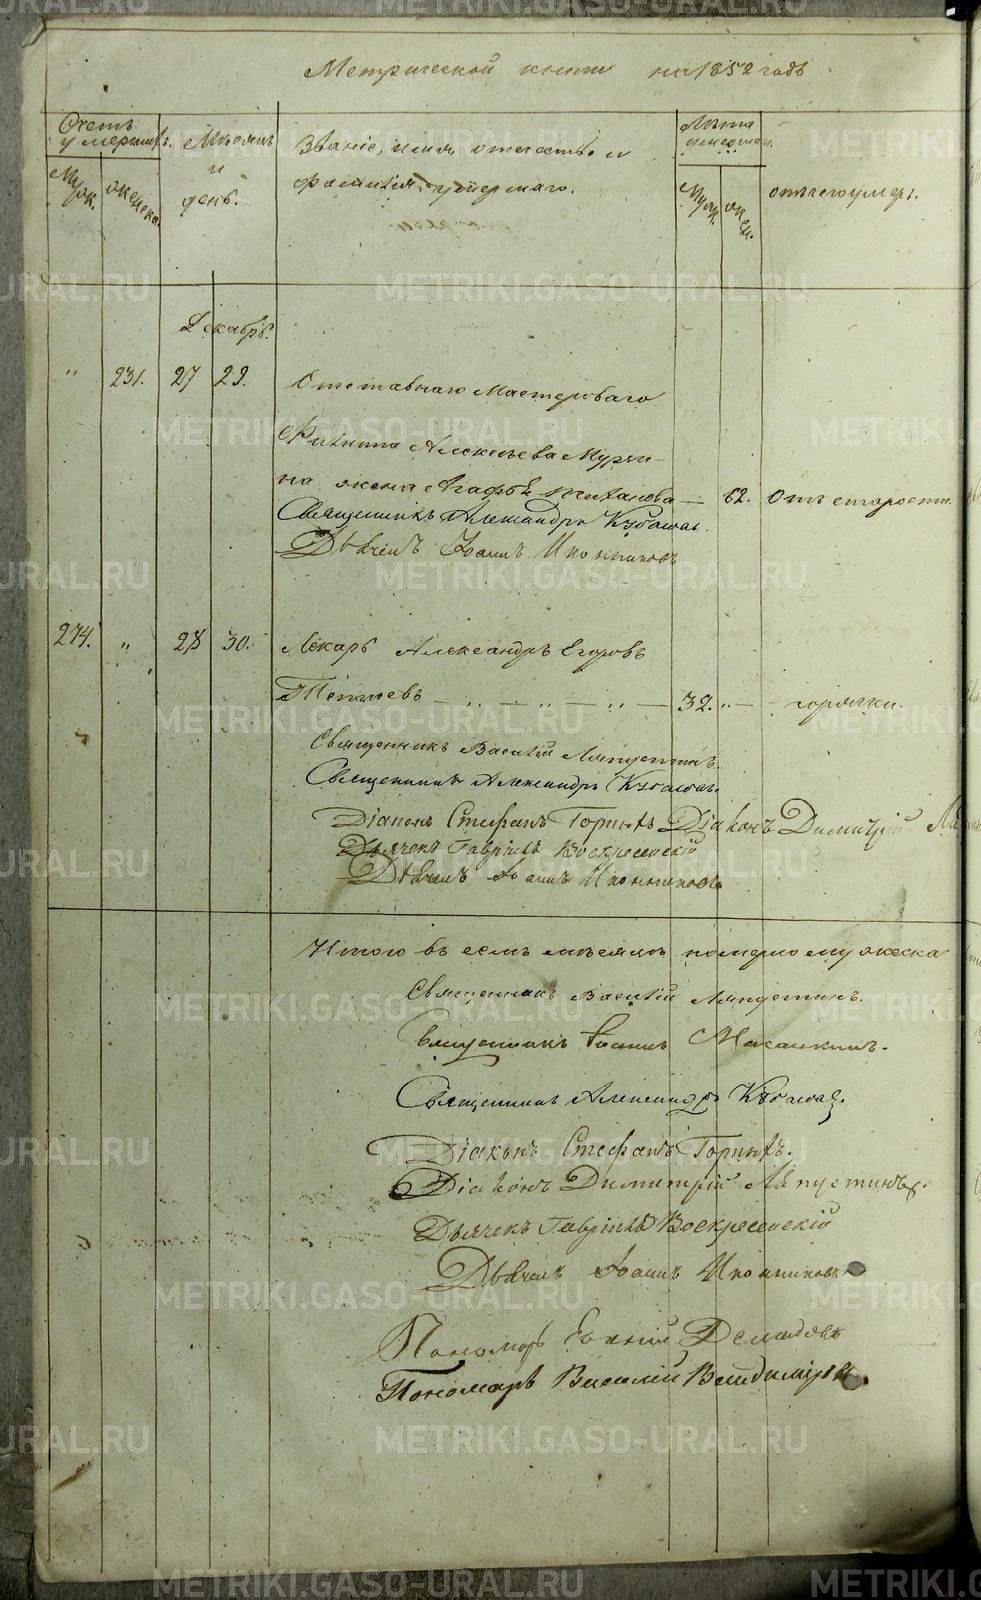 Метрической книги на 1852 годъ
Счетъ умершихъ.
Муж.
женска.
Мѣсяцъ и день.
Званіе, имя, отчество и фамилія умершаго.
Лѣта умершаго.
Муж.
жен.
отъ чего умеръ.
Декабрь.
" 231. 27 29. Отставнаго Мастероваго
Филиппа Алексѣева Мурзи-
на жена Агафья — 62. Отъ старости.
Священникъ Александръ
Дьячекъ Іоаннъ Иконниковъ
274. " 28 30. Лекарь Александръ Егоровъ
Тепловъ — " — " — " — 32. " — горячки.
Священникъ Василій Ляпустинъ.
Священникъ Александръ
Діаконъ Стефанъ Діаконъ Димитрій
Дьячекъ Гавріилъ Воскресенскій
Дьячекъ Іоаннъ Иконниковъ
Итого въ семъ мѣсяцѣ померло мужеска
Священникъ Василій Ляпустинъ.
Священникъ Іоаннъ
Священникъ Александръ
Діаконъ Стефанъ
Діаконъ Димитрій Ляпустинъ.
Дьячекъ Гавріилъ Воскресенскій
Дьячекъ Іоаннъ Иконниковъ
Пономарь Демидовъ
Пономарь Василій
METRIKI.GASO-URAL.RU